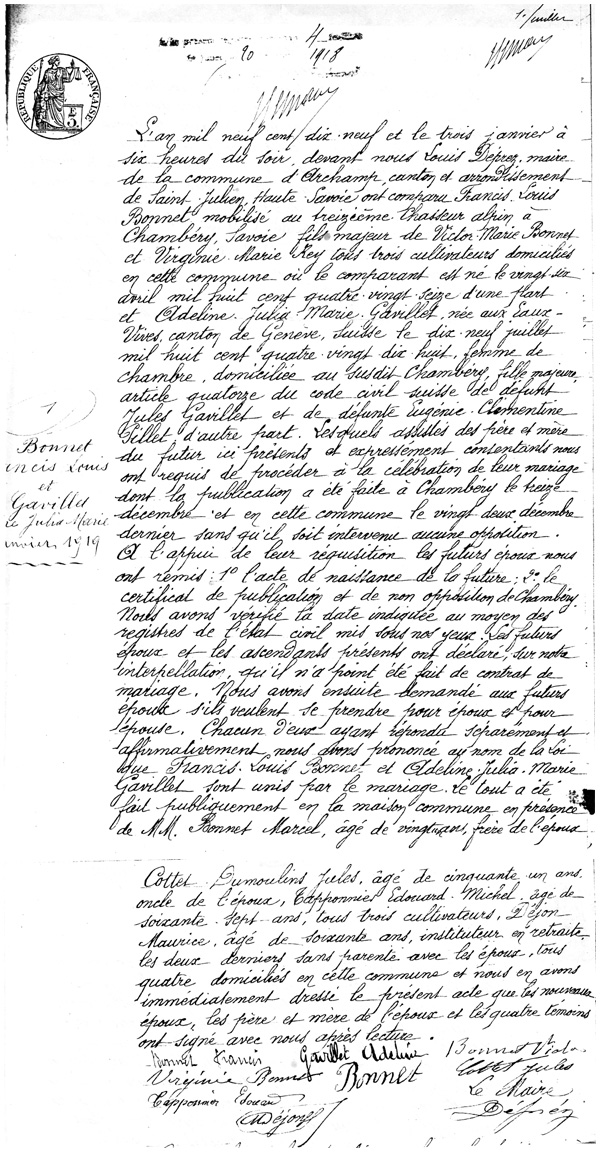 1. / feuillet
4
20 1918
RÉPUBLIQUE FRANÇAISE
L'an mil neuf cent dix-neuf et le trois janvier à
six heures du soir, devant nous Louis Déprez, maire
de la commune d'Archamp canton et arrondissement
de Saint-Julien, Haute-Savoie ont comparu Francis-Louis
Bonnet mobilisé au treizième Chasseur alpin à
Chambéry, Savoie fils majeur de Victor-Marie Bonnet
et Virginie-Marie Rey tous trois cultivateurs domiciliés
en cette commune où le comparant est né le vingt-six
avril mil huit cent quatre-vingt-seize d'une part
et Adeline-Julia-Marie-Gavillet, née aux Eaux-
Vives, canton de Genève, Suisse le dix-neuf juillet
mil huit cent quatre-vingt dix huit, femme de
chambre, domiciliée au susdit Chambéry, fille majeure,
article quatorze du code civil suisse de défunt
Jules Gavillet et de défunte Eugénie-Clémentine
Pillet d'autre part. Lesquels assistés des père et mère
du futur ici présents et expressement consentants nous
ont requis de procéder à la célébration de leur mariage
dont la publication a été faite à Chambéry le treize
décembre et en cette commune le vingt deux décembre
dernier sans qu'il soit intervenu aucune opposition.
A l'appui de leur réquisition les futurs époux nous
ont remis: 1º l'acte de naissance de la future; 2º le
certificat de publication et de non opposition de Chambéry.
Nous avons vérifié la date indiquée au moyen des
registres de l'état civil mis sous nos yeux. Les futurs
époux et les ascendants présents ont déclaré, sur notre
interpellation, qu'il n'a point été fait de contrat de
mariage. Nous avons ensuite demandé aux futurs
époux s'ils veulent se prendre pour époux et pour
épouse. Chacun d'eux ayant répondu séparement et
affirmativement nous avons prononcé au nom de la Loi
que Francis-Louis Bonnet et Adeline-Julia-Marie
Gavillet sont unis par le mariage. Le tout a été
fait publiquement en la maison commune en présence
de M.M. Bonnet Marcel, âgé de vingt ans, frère de l'époux
1
Bonnet
ncis Louis
et
Gavillet
Julia-Marie
anvier 1919
Cottet-Dumoulins Jules, âgé de cinquante un ans,
oncle de l'époux, Tapponnier Edouard-Michel, âgé de
soixante-sept ans, tous trois cultivateurs, Déjon
Maurice, âgé de soixante ans, instituteur en retraite,
les deux derniers sans parenté avec les époux, tous
quatre domiciliés en cette commune et nous en avons
immédiatement dressé le présent acte que les nouveaux
époux, les père et mère de l'époux et les quatre témoins
ont signé avec nous après lecture.
Bonnet Francis Gavillet Adeline Bonnet Victor
Virginie Bonnet Bonnet Cottet Jules
Tapponnier Edouard Le Maire
MDéjon Déprez